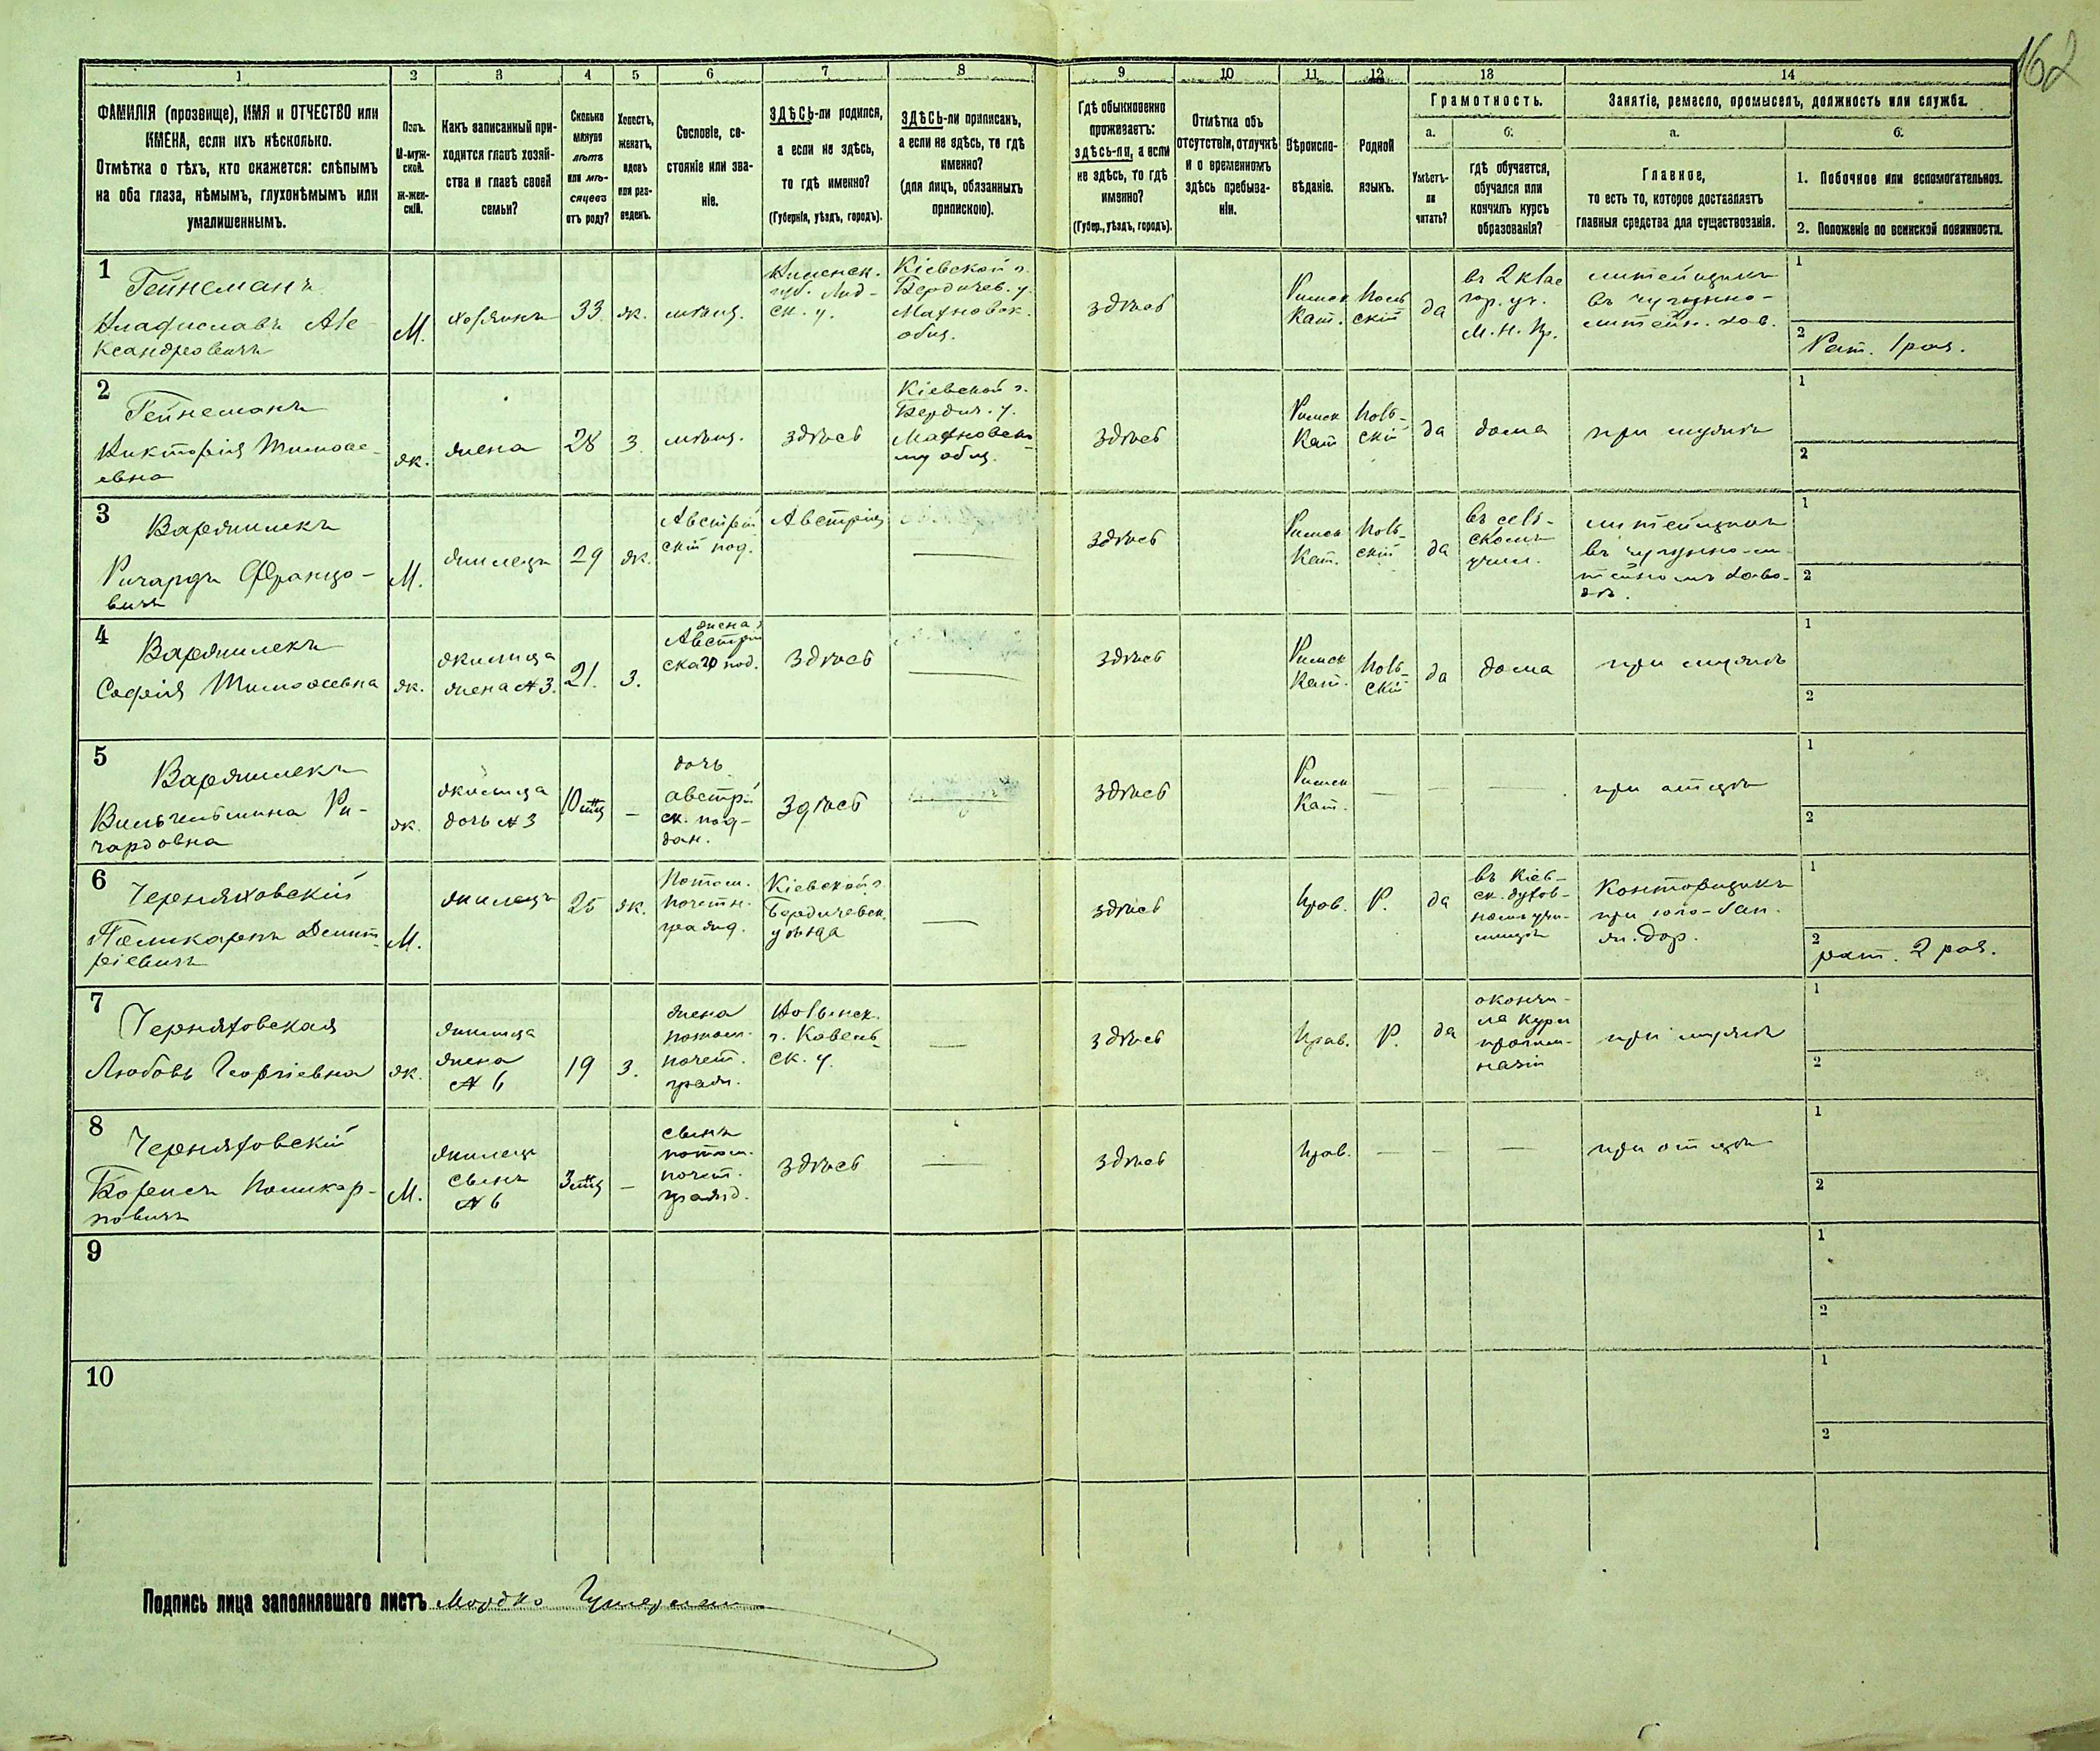 162
1 2 3 4 5 6 7 8 9 10 11 12 13 14
ФАМИЛІЯ (прозвище), ИМЯ и ОТЧЕСТВО или
ИМЕНА, если ихъ нѣсколько.
Отмѣтка о тѣхъ, кто окажется: слѣпымъ
на оба глаза, нѣмымъ, глухонѣмымъ или
умалишеннымъ.
Полъ.
М-муж-
ской.
Ж-жен-
скій.
Какъ записанный при-
ходится главѣ хозяй-
ства и главѣ своей
семьи?
Сколько
минуло
лѣтъ
или мѣ-
сяцевъ
отъ роду?
Холостъ,
женатъ,
вдовъ
или раз-
веденъ.
Сословіе, со-
стояніе или зва-
ніе.
ЗДѢСЬ-ли родился,
а если не здѣсь,
то гдѣ именно?
(Губернія, уѣздъ, городъ).
ЗДѢСЬ-ли приписанъ,
а если не здѣсь, то гдѣ
именно?
(для лицъ, обязанныхъ
припискою).
Гдѣ обыкновенно
проживаетъ:
здѣсь-ли, а если
не здѣсь, то гдѣ
именно?
(Губер., уѣздъ, городъ).
Отмѣтка объ
отсутствіи, отлучкѣ
и о временномъ
здѣсь пребыва-
ніи.
Вѣроиспо-
вѣданіе.
Родной
языкъ.
Грамотность.
а.
Умѣетъ-
ли
читать?
б.
гдѣ обучается,
обучался или
кончилъ курсъ
образованія?
Занятіе, ремесло, промыселъ, должность или служба.
а.
Главное,
то есть то, которое доставляетъ
главныя средства для существованія.
б.
1. Побочное или вспомогательное.
2. Положеніе по воинской повинности.
1
Гейнеманъ
Владиславъ Але-
ксандровичъ
М.
хозяинъ
33.
ж.
мѣщ.
Виленск.
губ. Лид-
ск. у.
Кіевской г.
Бердичев. у.
Махновск.
общ.
здѣсь
Римск
Кат.
поль
скій
да
въ 2 клас
гор. уч.
М. Н. Пр.
литейщикъ
въ чугунно-
литейн. зав.
1
2
Рат. 1 раз.
2
Гейнеманъ
Викторія Тимофе-
евна
ж.
жена
28
з.
мѣщ.
здѣсь
Кіевской г.
Бердич. у.
Махновско
му общ.
здѣсь
Римск
Кат
поль-
скій
да
дома
при мужѣ
1
2
3
Варжилекъ
Ричардъ Францо-
вичъ
М.
жилецъ
29
ж.
Австрій
скій под.
Австрія
здѣсь
Римск
Кат.
поль-
скій
да
въ сель-
скомъ
учил.
литейщикъ
въ чугунно-ли-
тейномъ заво-
дѣ.
1
2
4
Варжилекъ
Софія Тимофеевна
ж.
жилица
жена № 3.
21.
з.
жена
Австрій
скаго под.
здѣсь
здѣсь
Римск
Кат.
поль-
скій
да
дома
при мужѣ
1
2
5
Варжилекъ
Вильгельмина Ри-
чардовна
ж.
жилица
дочь № 3
10 мц
—
дочь
австрій
ск. под-
дан.
здѣсь
здѣсь
Римск
Кат.
— — —
при отцѣ
1
2
6
Черняховскій
Поликарпъ Дмит-
ріевичъ
М.
жилецъ
25
ж.
Потом.
почетн.
гражд.
Кіевской г.
Бердичевск.
уѣзда
—
здѣсь
Прав.
Р.
да
въ Кіев-
ск. духов-
номъ учи-
лищѣ
Конторщикъ
при юго-зап.
ж. дор.
1
2
рат. 2 раз.
7
Черняховская
Любовь Георгіевна
ж.
жилица
жена
№ 6
19
з.
жена
потом.
почет.
граж.
Волынск.
г. Ковель-
ск. у.
—
здѣсь
Прав.
Р.
да
окончи-
ла курс
прогим-
назіи
при мужѣ
1
2
8
Черняховскій
Борисъ Поликар-
повичъ
М.
жилецъ
сынъ
№ 6
3 мц
—
сынъ
потом.
почет.
гражд.
здѣсь
—
здѣсь
Прав.
— — —
при отцѣ
1
2
9
1
2
10
1
2
Подпись лица заполнявшаго листъ Мордко